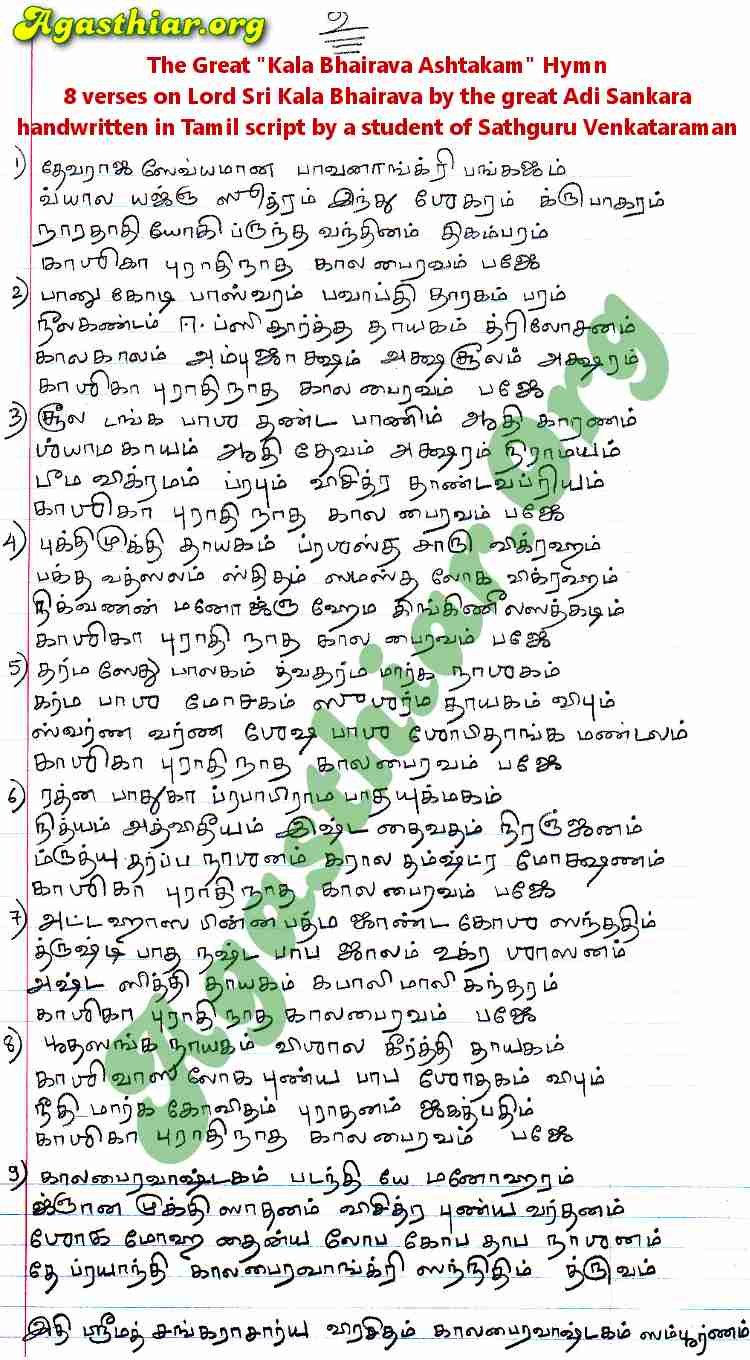 Agasthiar.org
உ
The Great "Kala Bhairava Ashtakam" Hymn
8 verses on Lord Sri Kala Bhairava by the great Adi Sankara
handwritten in Tamil script by a student of Sathguru Venkataraman
1) தேவராஜ ஸேவ்யமான பாவனாங்க்ரி பங்கஜம்
வ்யால யஜ்ஞ ஸூத்ரம் இந்து ஶேகரம் க்ருபாகரம்
நாரதாதி யோகி ப்ருந்த வந்தினம் திகம்பரம்
காஶிகா புராதிநாத கால பைரவம் பஜே
2) பானு கோடி பாஸ்வரம் பவாப்தி தாரகம் பரம்
நீலகண்டம் ஈப்ஸிதார்த்த தாயகம் த்ரிலோசனம்
காலகாலம் அம்புஜாக்ஷம் அக்ஷசூலம் அக்ஷரம்
காஶிகா புராதிநாத கால பைரவம் பஜே
3) சூல டங்க பாஶ தண்ட பாணிம் ஆதி காரணம்
ஶ்யாம காயம் ஆதி தேவம் அக்ஷரம் நிராமயம்
பீம விக்ரமம் ப்ரபும் விசித்ர தாண்டவப்ரியம்
காஶிகா புராதி நாத கால பைரவம் பஜே
4) புக்திமுக்தி தாயகம் ப்ரஶஸ்த சாரு விக்ரஹம்
பக்த வத்ஸலம் ஸ்திதம் ஸமஸ்த லோக விக்ரஹம்
நிக்வணன் மனோக்ஞ ஹேம கிங்கிணீலஸத்கடிம்
காஶிகா புராதி நாத கால பைரவம் பஜே
5) தர்ம ஸேது பாலகம் த்வதர்ம மார்க நாஶகம்
கர்ம பாஶ மோசகம் ஸுஶர்ம தாயகம் விபும்
ஸ்வர்ண வர்ண ஶேஷ பாஶ ஶோபிதாங்க மண்டலம்
காஶிகா புராதி நாத காலபைரவம் பஜே
6) ரத்ன பாதுகா ப்ரபாபிராம பாதயுக்மகம்
நித்யம் அத்விதீயம் இஷ்ட தைவதம் நிரஞ்ஜனம்
ம்ருத்யு தர்ப்ப நாஶனம் கரால தம்ஷ்ட்ர மோக்ஷணம்
காஶிகா புராதிநாத காலபைரவம் பஜே
7) அட்டஹாஸ பின்னபத்ம ஜாண்ட கோஶ ஸந்ததிம்
த்ருஷ்டி பாத நஷ்ட பாப ஜாலம் உக்ர ஶாஸனம்
அஷ்ட ஸித்தி தாயகம் கபாலி மாலி கந்தரம்
காஶிகா புராதி நாத காலபைரவம் பஜே
8) பூதஸங்க நாயகம் விஶால கீர்த்தி தாயகம்
காஶிவாஸ லோக புண்ய பாப ஶோதகம் விபும்
நீதி மார்க கோவிதம் புராதனம் ஜகத்பதிம்
காஶிகா புராதிநாத காலபைரவம் பஜே
9) காலபைரவாஷ்டகம் படந்தி யே மனோஹரம்
க்ஞான முக்தி ஸாதனம் விசித்ர புண்ய வர்தனம்
ஶோக மோஹ தைன்ய லோப கோப தாப நாஶனம்
தே ப்ரயாந்தி காலபைரவாங்க்ரி ஸந்நிதிம் த்ருவம்
இதி ஸ்ரீமத் சங்கராசார்ய விரசிதம் காலபைரவாஷ்டகம் ஸம்பூர்ணம்
Agasthiar.org